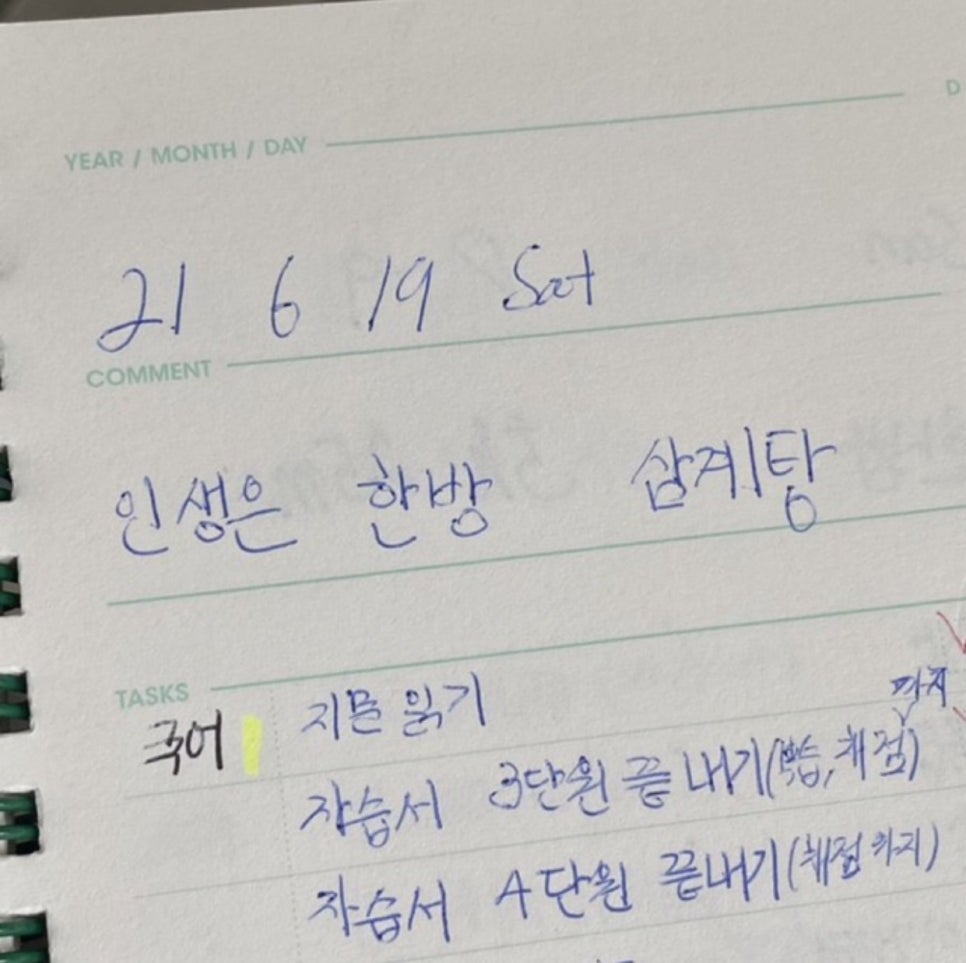 D
YEAR / MONTH / DAY
21 6 19 Sat
COMMENT
인생은 한방 삼계탕
TASKS
국어 지문 읽기
까지
자습서 3단원 끝내기(복습,채점)
자습서 4단원 끝내기(채점까지)